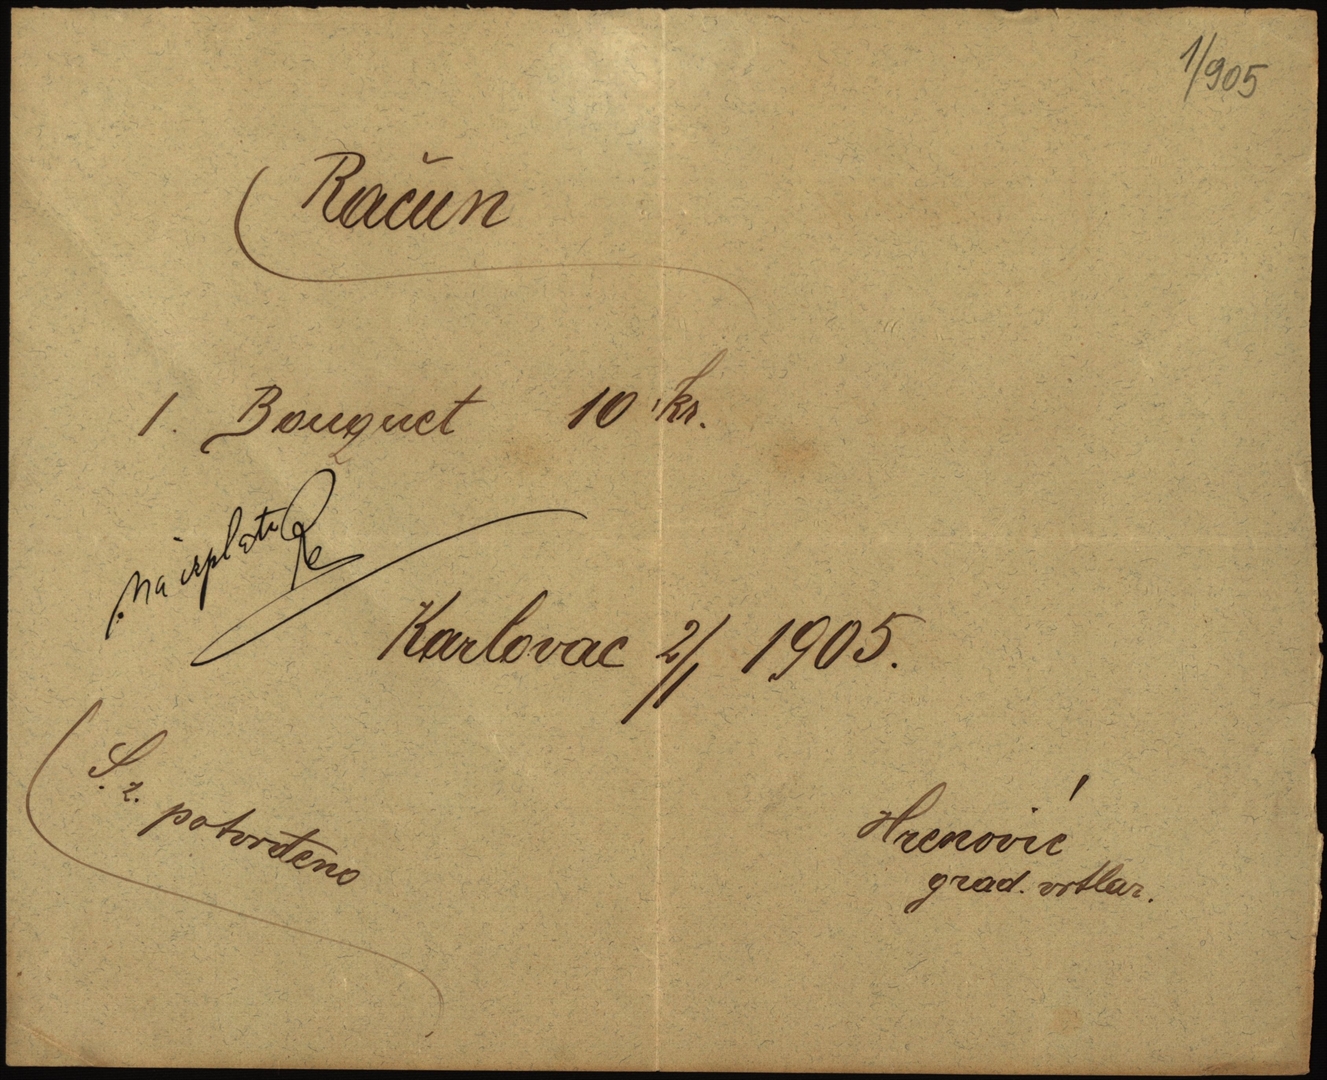 1/905
Račun
1. Bouquet 10 kr.
na isplatu
Karlovac 2/1 1905.
S. z. potvrđeno
Hrenović
grad. vrtlar.